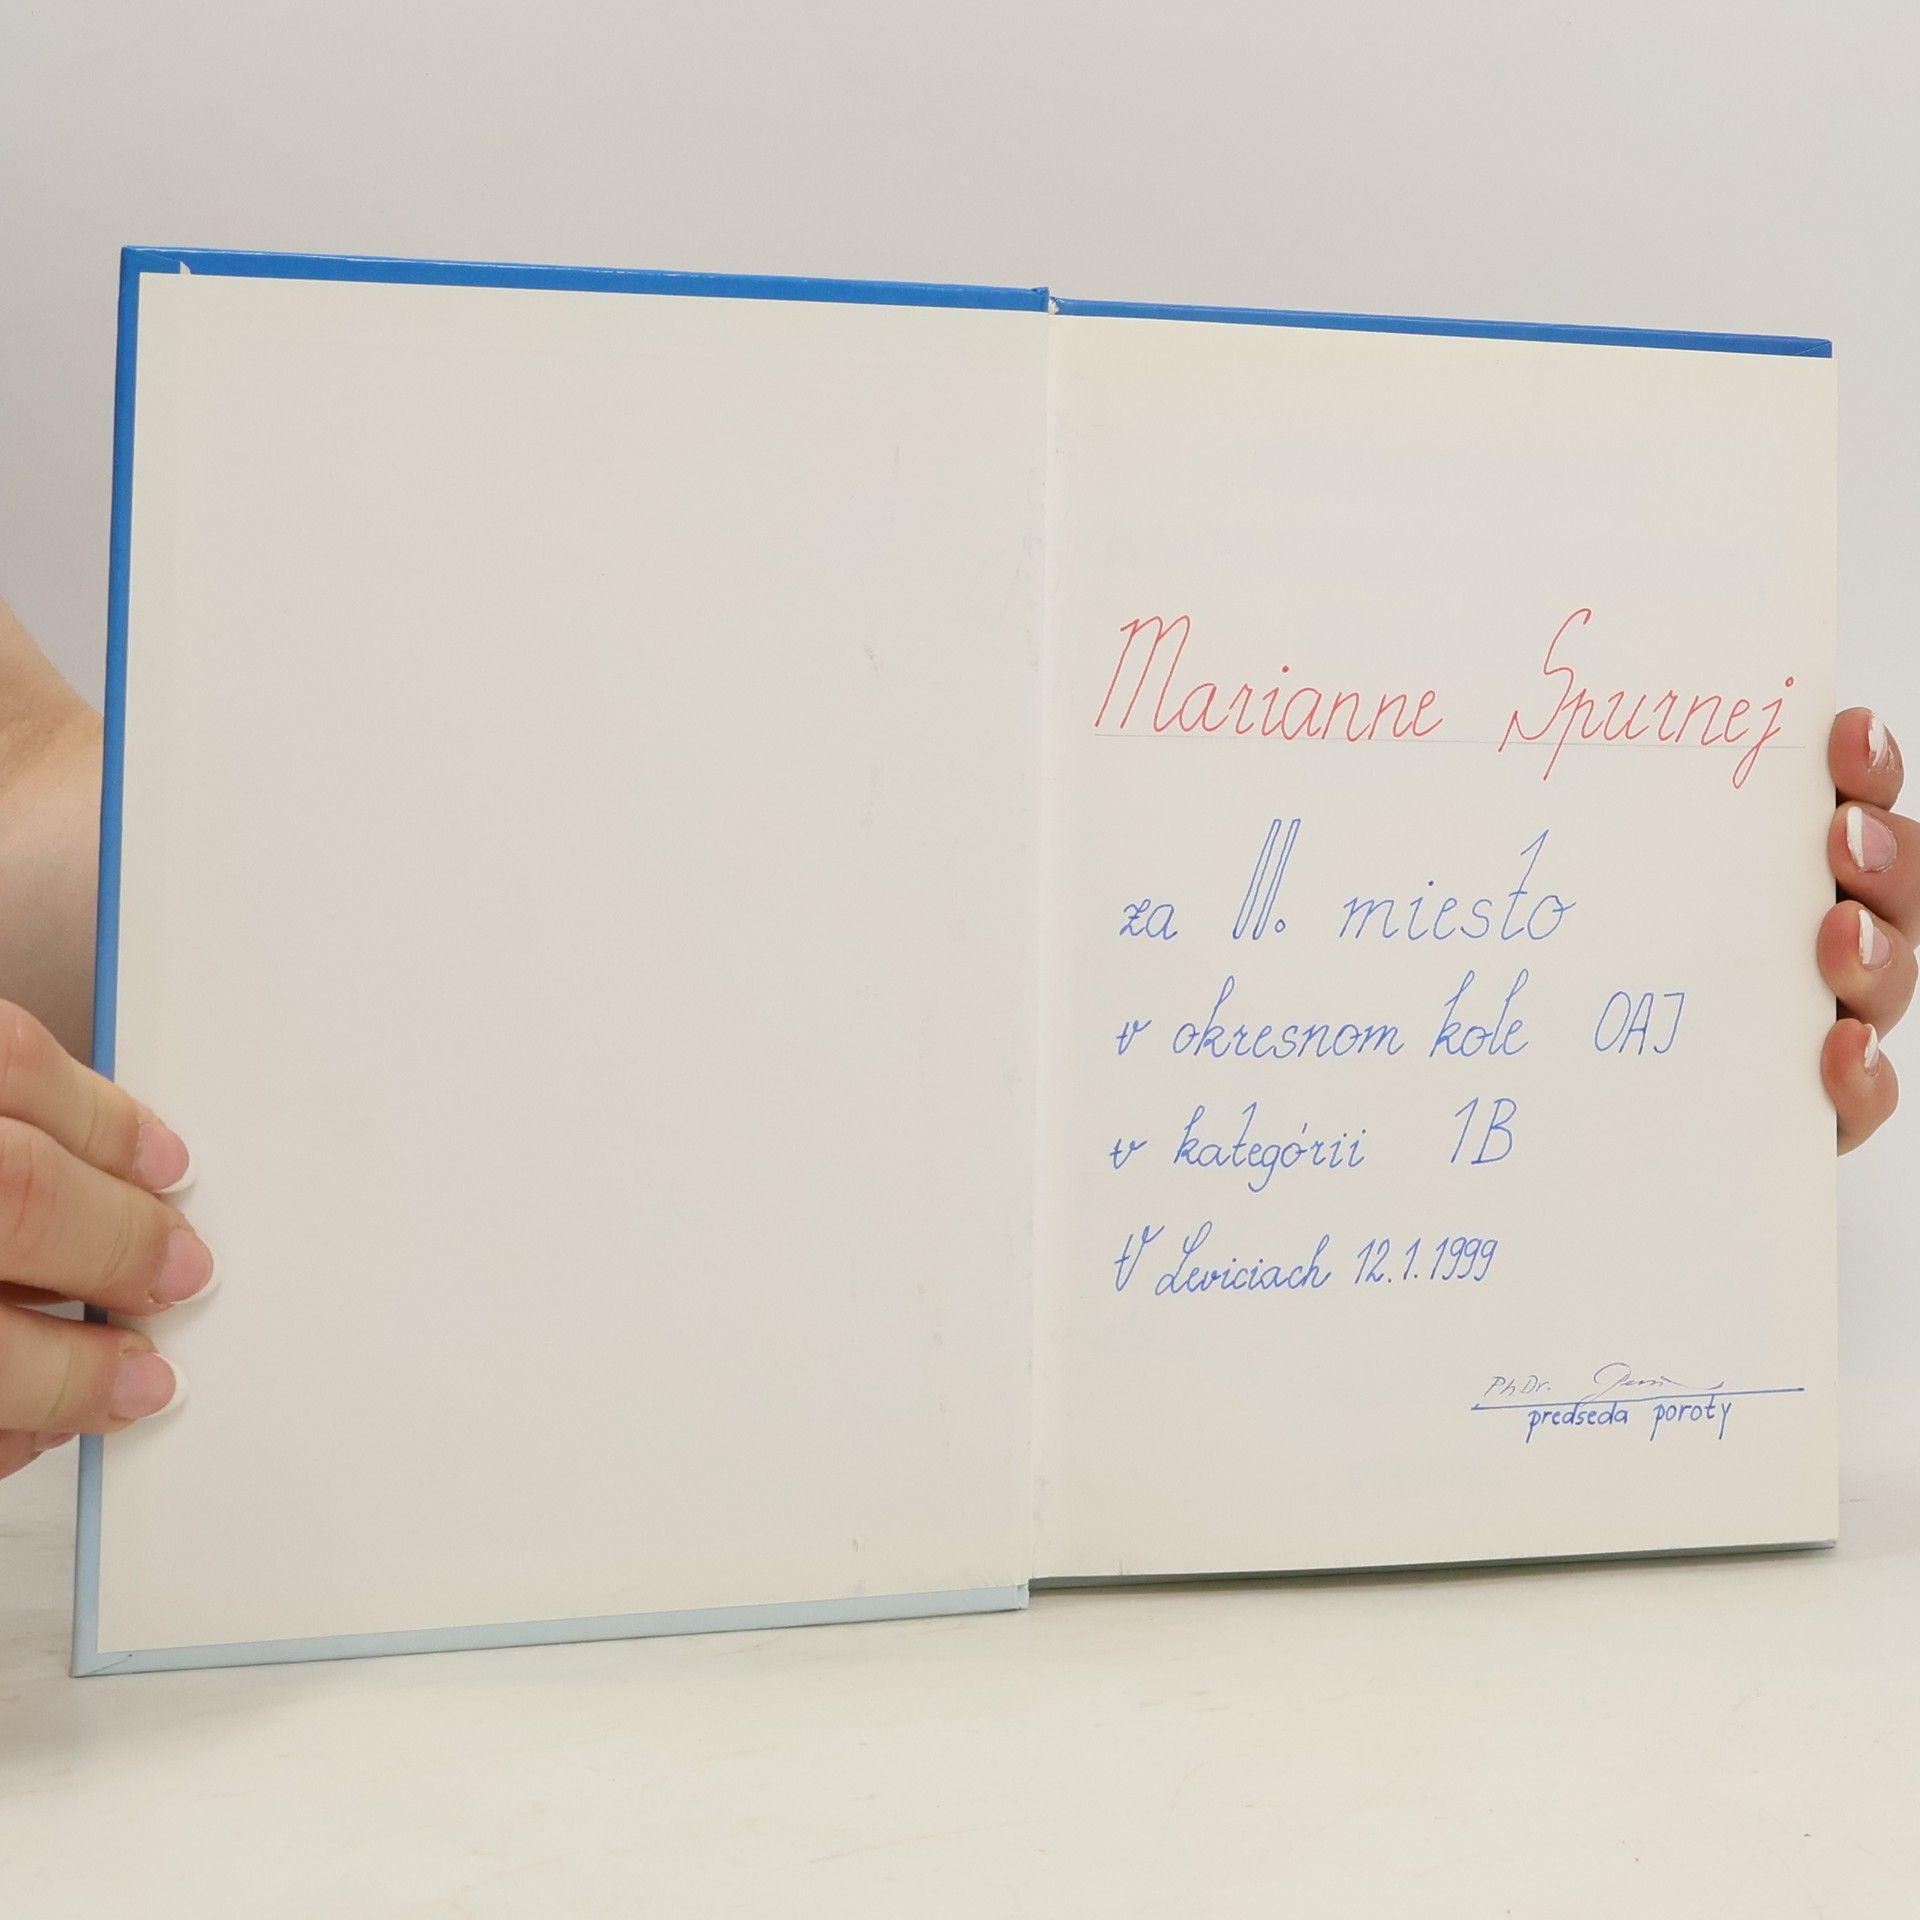 Marianne Spurnej
za II. miesto
v okresnom kole OAJ
v kategórii 1B
V Leviciach 12.1.1999
PhDr.
predseda poroty